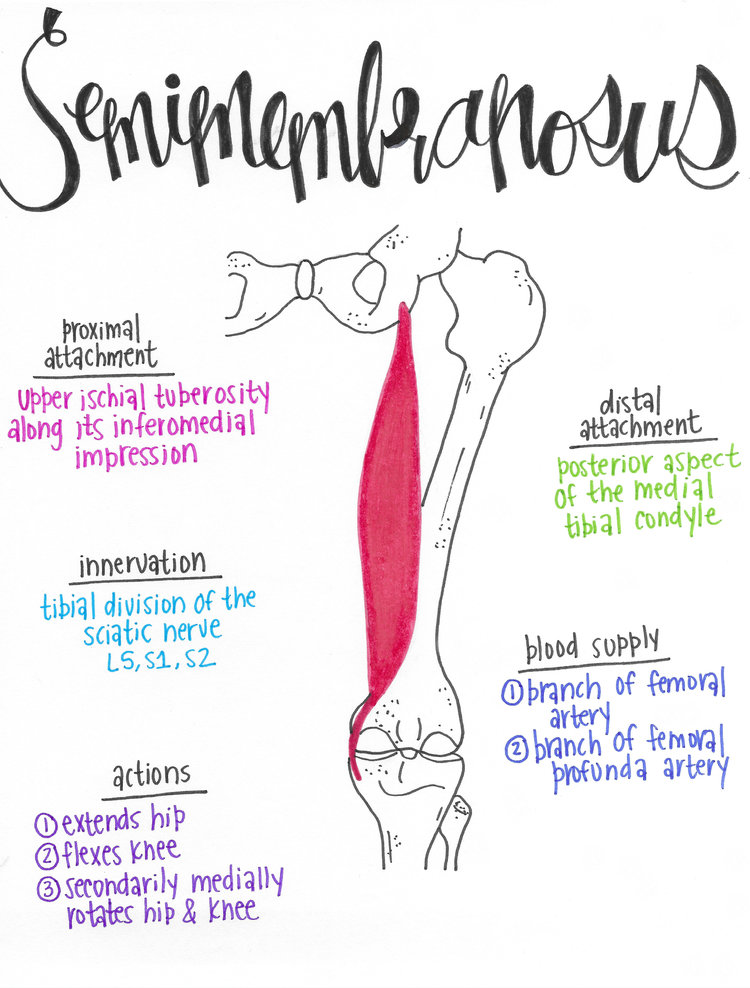 Semimembranosus
proximal
attachment
upper ischial tuberosity
along its inferomedial
impression
distal
attachment
posterior aspect
of the medial
tibial condyle
innervation
tibial division of the
sciatic nerve
L5, S1, S2
blood supply
① branch of femoral
artery
② branch of femoral
profunda artery
actions
① extends hip
② flexes knee
③ secondarily medially
rotates hip & knee